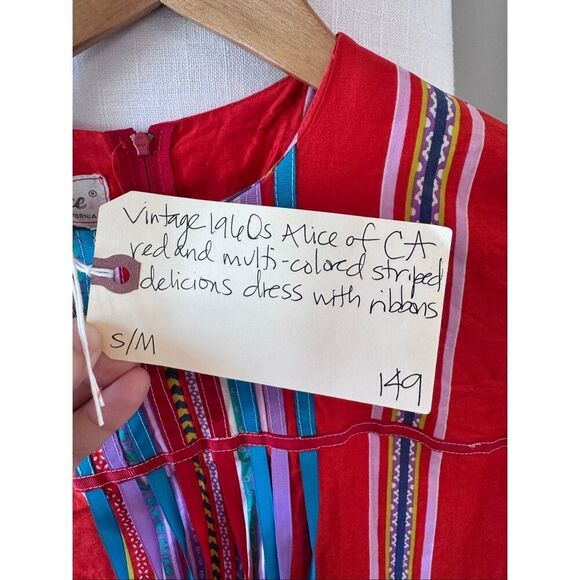 ce®
FORNIA
Vintage 1960s Alice of CA
red and multi-colored striped
delicious dress with ribbons
S/M
149